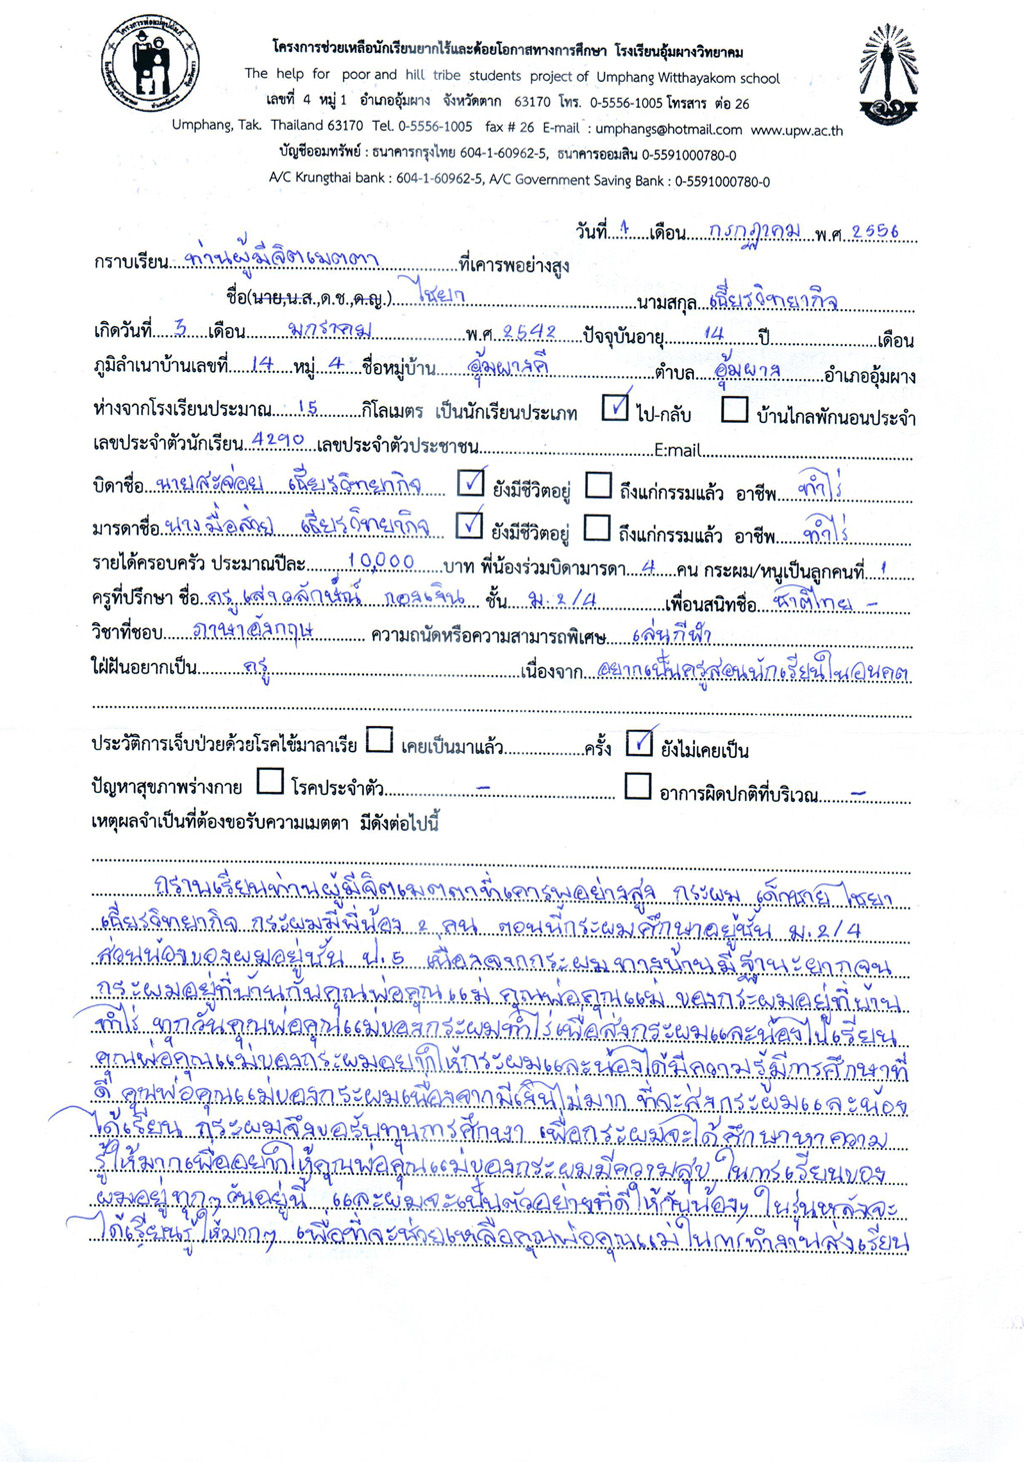 โครงการช่วยเหลือนักเรียนยากไร้และด้อยโอกาสทางการศึกษา โรงเรียนอุ้มผางวิทยาคม
The help for poor and hill tribe students project of Umphang Witthayakom school
เลขที่ 4 หมู่ 1 อำเภออุ้มผาง จังหวัดตาก 63170 โทร. 0-5556-1005 โทรสาร ต่อ 26
Umphang, Tak. Thailand 63170 Tel. 0-5556-1005 fax # 26 E-mail : umphangs@hotmail.com www.upw.ac.th
บัญชีออมทรัพย์ : ธนาคารกรุงไทย 604-1-60962-5, ธนาคารออมสิน 0-5591000780-0
A/C Krungthai bank : 604-1-60962-5, A/C Government Saving Bank : 0-5591000780-0
วันที่ 1 เดือน กรกฎาคม พ.ศ 2556
กราบเรียน ท่านผู้มีจิตเมตตา ที่เคารพอย่างสูง
ชื่อ(นาย,น.ส.,ด.ช.,ด.ญ.) ไชยา นามสกุล เฉียรวิทยากิจ
เกิดวันที่ 3 เดือน มกราคม พ.ศ 2542 ปัจจุบันอายุ 14 ปี เดือน
ภูมิลำเนาบ้านเลขที่ 14 หมู่ 4 ชื่อหมู่บ้าน อุ้มผางคี ตำบล อุ้มผาง อำเภออุ้มผาง
ห่างจากโรงเรียนประมาณ 15 กิโลเมตร เป็นนักเรียนประเภท ✓ ไป-กลับ บ้านไกลพักนอนประจำ
เลขประจำตัวนักเรียน 4290 เลขประจำตัวประชาชน E:mail
บิดาชื่อ นายสะจ่อย เฉียรวิทยากิจ ✓ ยังมีชีวิตอยู่ ถึงแก่กรรมแล้ว อาชีพ ทำไร่
มารดาชื่อ นางมื่อส่วย เฉียรวิทยากิจ ✓ ยังมีชีวิตอยู่ ถึงแก่กรรมแล้ว อาชีพ ทำไร่
รายได้ครอบครัว ประมาณปีละ 10,000 บาท พี่น้องร่วมบิดามารดา 4 คน กระผม/หนูเป็นลูกคนที่ 1
ครูที่ปรึกษา ชื่อ ครู เสาวลักษ์ณ์ กองเงิน ชั้น ม.2/4 เพื่อนสนิทชื่อ ชาติไทย -
วิชาที่ชอบ ภาษาอังกฤษ ความถนัดหรือความสามารถพิเศษ เล่นกีฬา
ใฝ่ฝันอยากเป็น ครู เนื่องจาก อยากเป็นครูสอนนักเรียนในอนคต
ประวัติการเจ็บป่วยด้วยโรคไข้มาลาเรีย เคยเป็นมาแล้ว ครั้ง ✓ ยังไม่เคยเป็น
ปัญหาสุขภาพร่างกาย โรคประจำตัว - อาการผิดปกติที่บริเวณ -
เหตุผลจำเป็นที่ต้องขอรับความเมตตา มีดังต่อไปนี้
กราบเรียนท่านผู้มีจิตเมตตาที่เคารพอย่างสูง กระผม เด็กชาย ไชยา
เฉียรวิทยากิจ กระผมมีพี่น้อง 2 คน ตอนนี้กระผมศึกษาอยู่ชั้น ม.2/4
ส่วนน้องของผมอยู่ชั้น ป.5 เนื่องจากกระผมทางบ้านมีฐานะยากจน
กระผมอยู่ที่บ้านกับคุณพ่อคุณแม่ คุณพ่อคุณแม่ ของกระผมอยู่ที่บ้าน
ทำไร่ ทุกวันคุณพ่อคุณแม่ของกระผมทำไร่เพื่อส่งกระผมและน้องไปเรียน
คุณพ่อคุณแม่ของกระผมอยากให้กระผมและน้องได้มีความรู้มีการศึกษาที่
ดี คุณพ่อคุณแม่ของกระผมเนื่องจากมีเงินไม่มาก ที่จะส่งกระผมและน้อง
ได้เรียน กระผมจึงขอรับทุนการศึกษา เพื่อกระผมจะได้ศึกษาหาความ
รู้ให้มากเพื่ออยากให้คุณพ่อคุณแม่ของกระผมมีความสุข ในการเรียนของ
ผมอยู่ทุกๆวันอยู่นี้ และผมจะเป็นตัวอย่างที่ดีให้กับน้องๆ ในรุ่นหลังจะ
ได้เรียนรู้ให้มากๆ เพื่อที่จะช่วยเหลือคุณพ่อคุณแม่ในการทำงานส่งเรียน